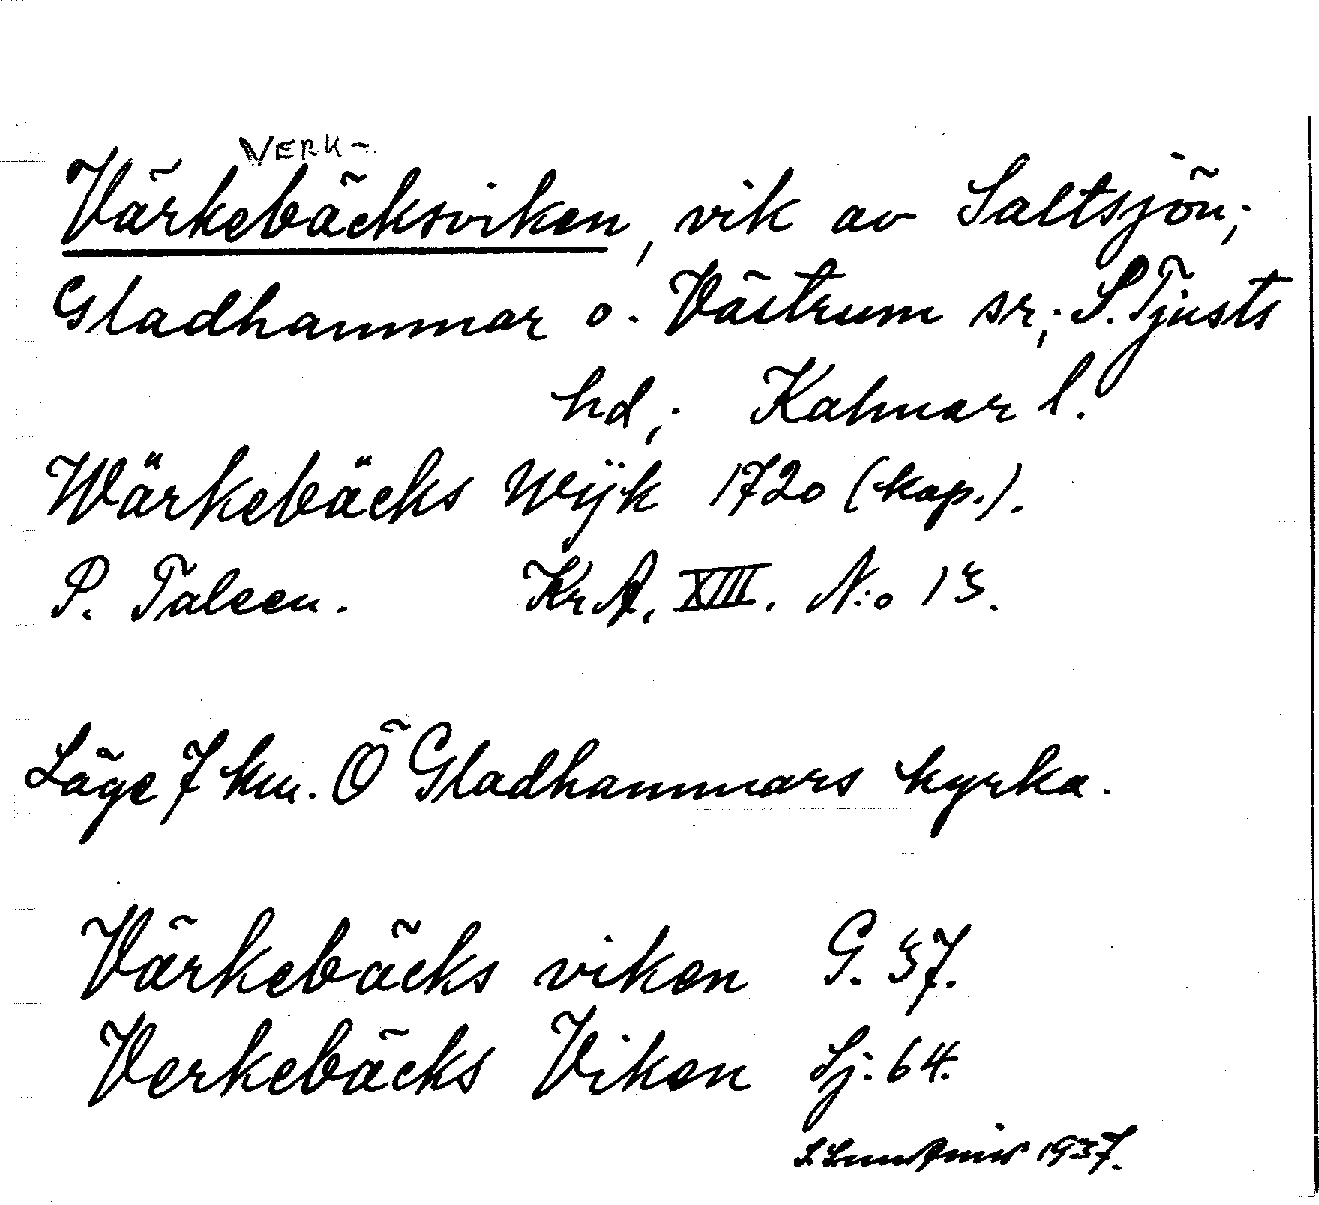 VERK-
Värkebäcksviken, vik av Saltsjön;
Gladhammar o. Västrum sr; S. Tjusts
hd; Kalmar l.
Wärkebäcks Wijk 1720 (kop.).
P. Taleen. KrA. XIII. N:o 13.
Läge 7 km. Ö Gladhammars kyrka.
Värkebäcks viken G. 37.
Verkebäcks Viken Sj: 64.
1937.